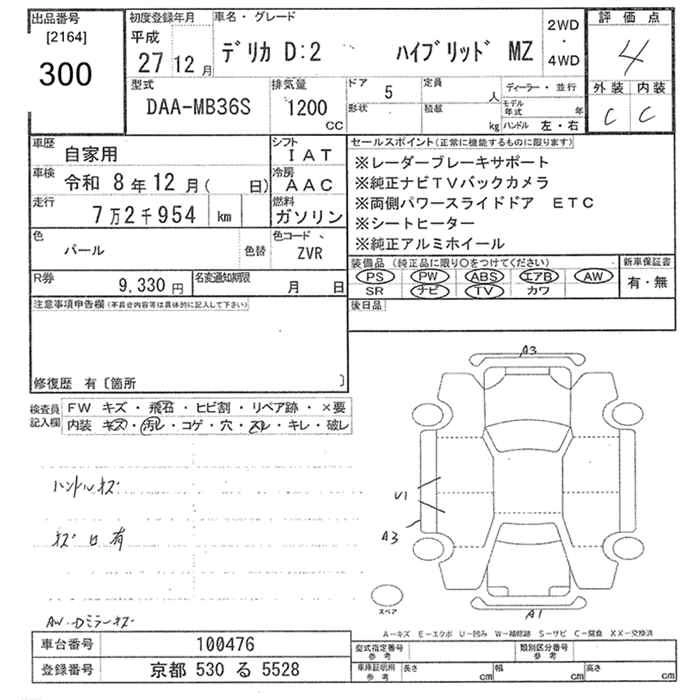 出品番号
[2164]
300
初度登録年月
平成
27 12 月
車名・グレード
デリカ D:2 ハイブリッド MZ
2WD
・
4WD
評価点
4
外装 内装
C C
型式
DAA-MB36S
排気量
1200
CC
ドア 5
形状
定員 人
積載 kg
ディーラー・並行
モデル年式 年
ハンドル 左・右
車歴 自家用
シフト IAT
車検 令和 8年 12月( 日)
冷房 AAC
走行 7万2千954 km
燃料 ガソリン
色 パール 色替
色コード ZVR
R券 9,330 円
名変通知期限 月 日
セールスポイント(正常に機能するものに限ります)
※レーダーブレーキサポート
※純正ナビTVバックカメラ
※両側パワースライドドア ETC
※シートヒーター
※純正アルミホイール
装備品 (純正品に限り○をつけてください)
PS PW ABS エアB AW
SR ナビ TV カワ
新車保証書
有・無
後日品
注意事項申告欄(不具合内容等は具体的に記入して下さい)
修復歴 有〔箇所 〕
検査員記入欄
FW キズ・飛石・ヒビ割・リペア跡・×要
内装 キズ・汚レ・コゲ・穴・スレ・キレ・破レ
ハンドルキズ
キズ凹有
AW・Dミラーキズ
A3
U1
A3
A1
スペア
A-キズ E-エクボ U-凹み W-補修跡 S-サビ C-腐食 XX-交換済
車台番号 100476
登録番号 京都 530 る 5528
型式指定番号 参考
類別区分番号 参考
車庫証明用 参考
長さ cm
幅 cm
高さ cm